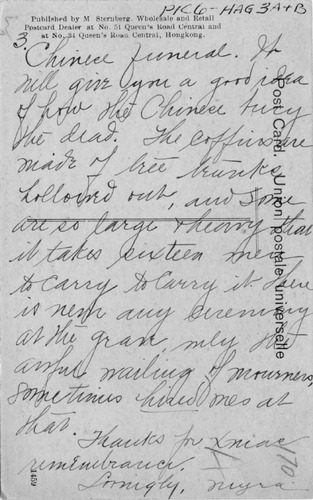 PIC6-HAG3A+B
Published by M Sternberg. Wholesale and Retail
Postcard Dealer at No. 51 Queen's Road Central and
at No. 34 Queen's Road Central, Hongkong.
3.
Chinese funeral. It
will give you a good idea
of how the Chinese bury
the dead. The coffins are
made of tree trunks
hollowed out, and some
are so large & heavy that
it takes sixteen men
to carry to carry it. There
is never any ceremony
at the grave, only the
awful wailing of mourners,
sometimes hired ones at
that.
Thanks for Xmas
remembrance.
Lovingly, Myra
Post Card. Union postale universelle